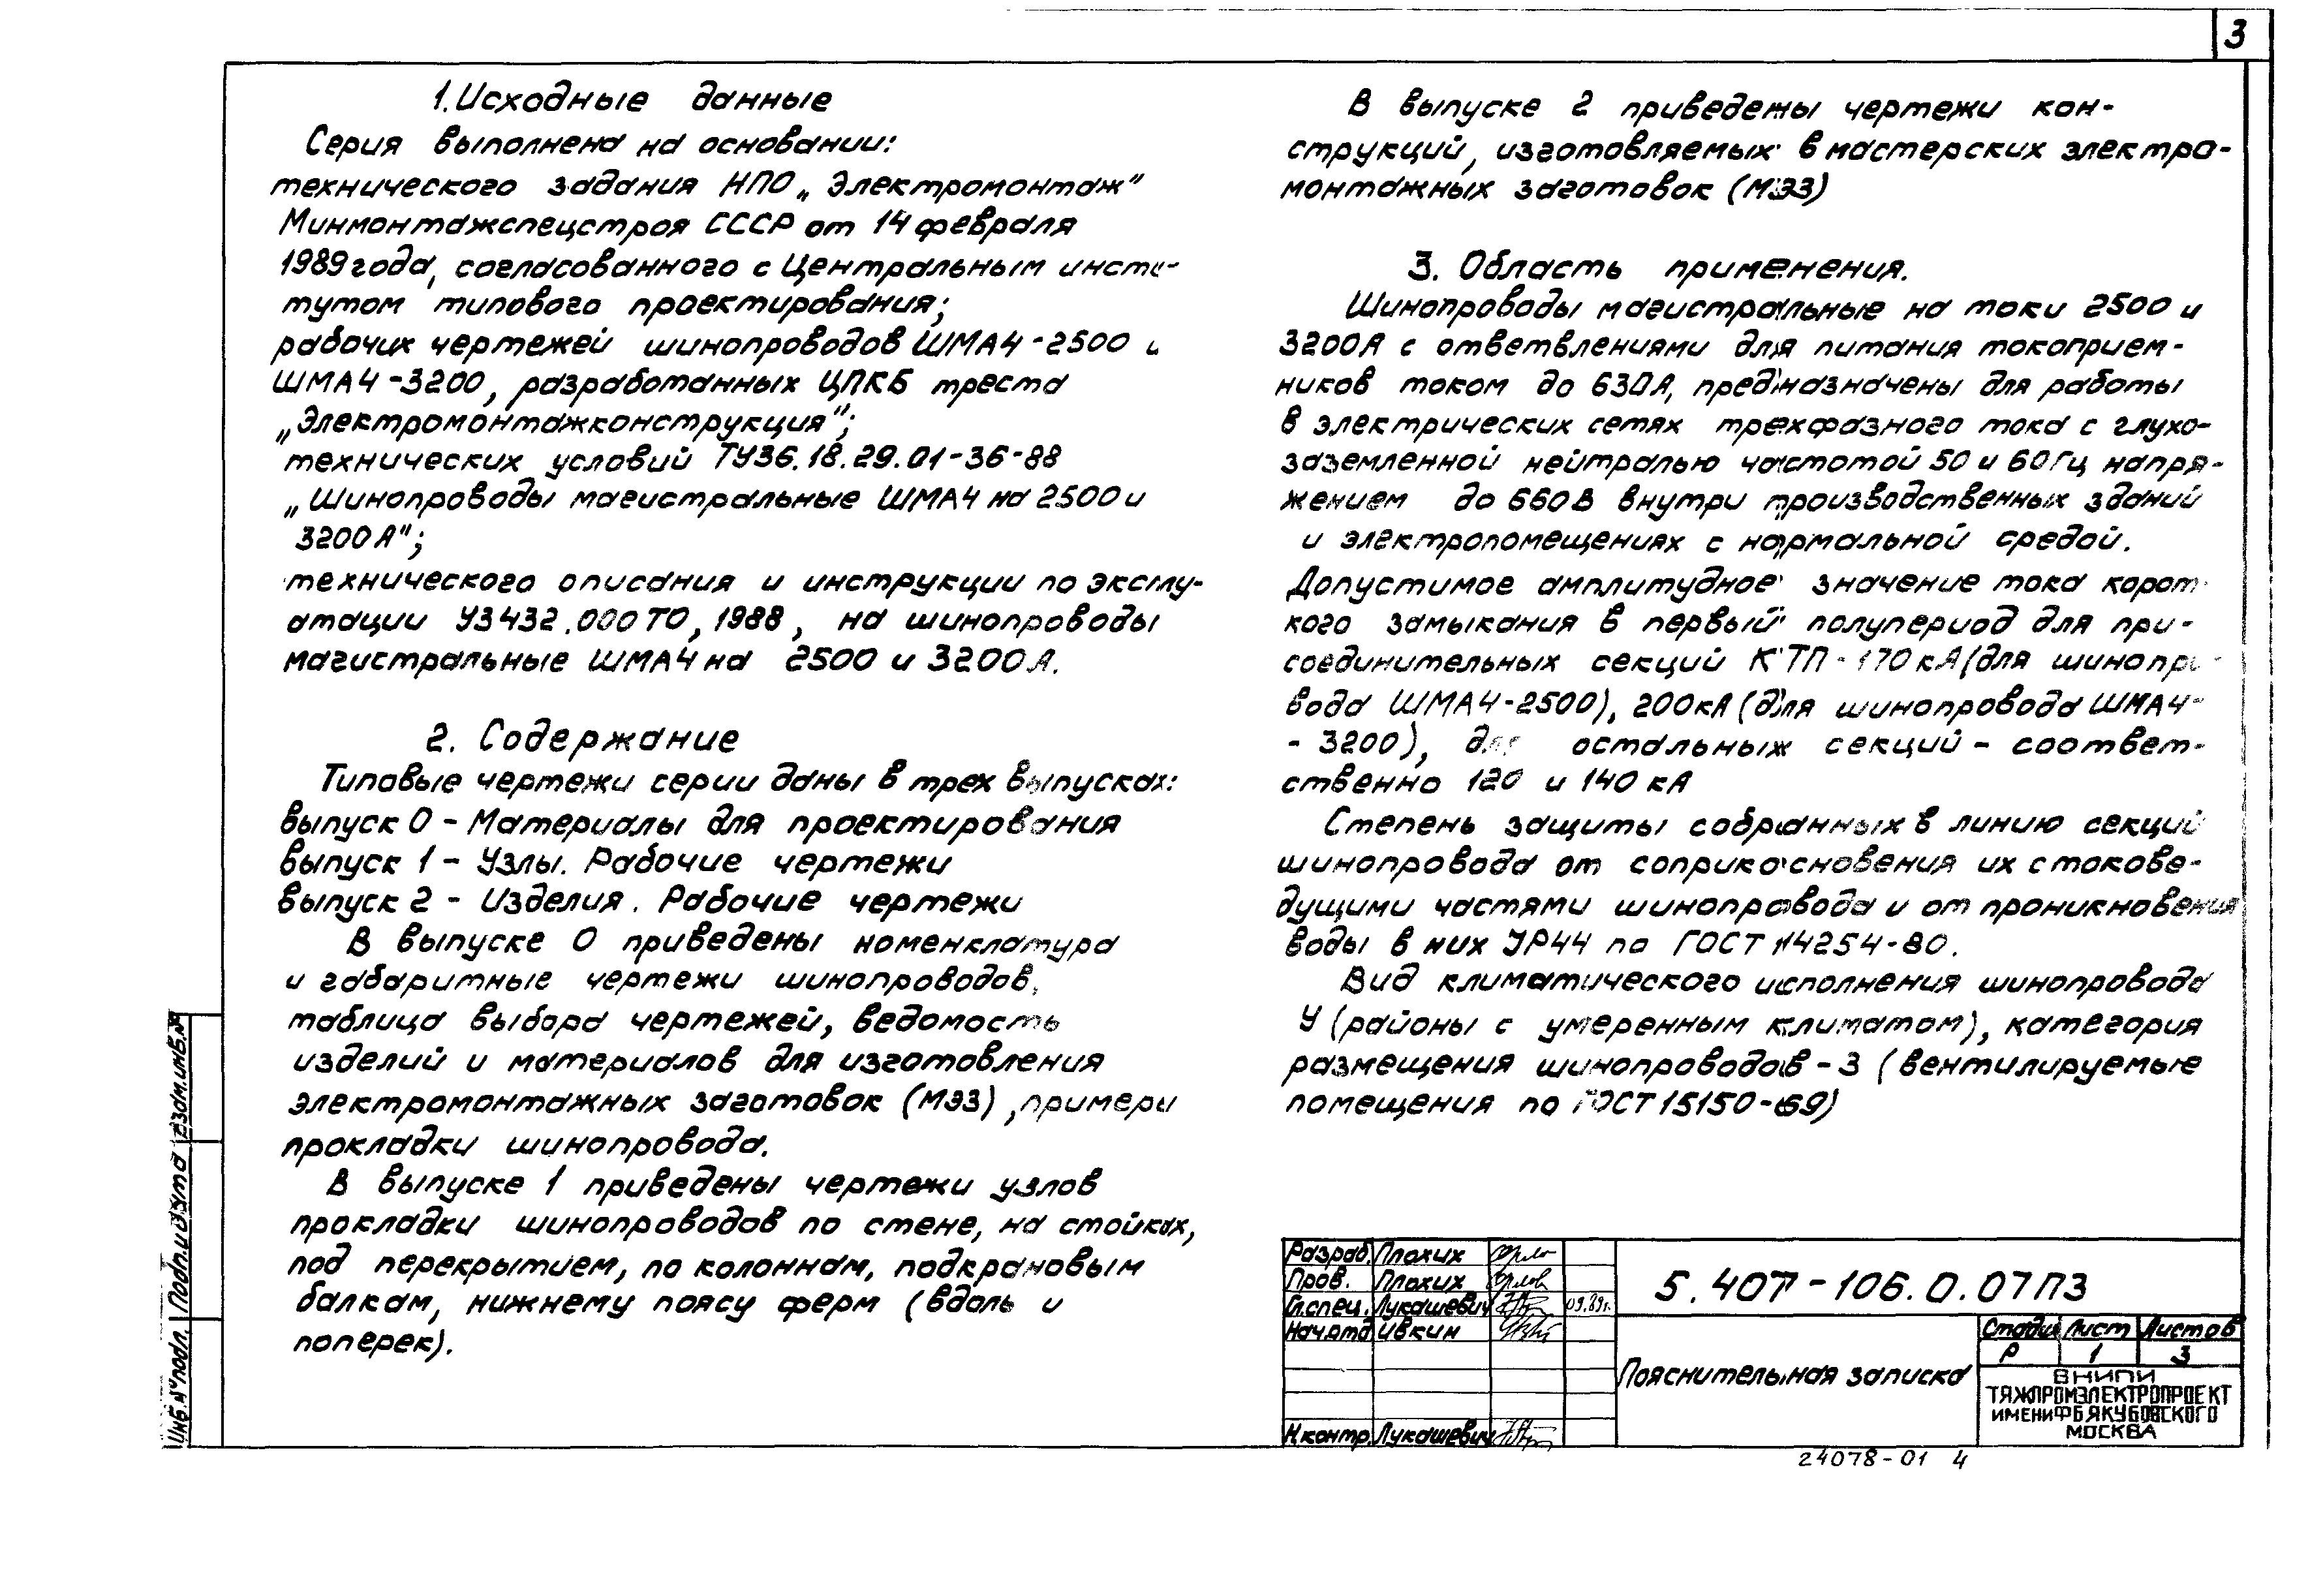 3
1. Исходные данные
Серия выполнена на основании:
технического задания НПО „Электромонтаж"
Минмонтажспецстроя СССР от 14 февраля
1989 года, согласованного с Центральным инсти-
тутом типового проектирования;
рабочих чертежей шинопроводов ШМА4-2500 и
ШМА4-3200, разработанных ЦПКБ треста
„Электромонтажконструкция";
технических условий ТУ36.18.29.01-36-88
„Шинопроводы магистральные ШМА4 на 2500 и
3200А";
технического описания и инструкции по эксплу-
атации У3432.000ТО, 1988, на шинопроводы
магистральные ШМА4 на 2500 и 3200А.
2. Содержание
Типовые чертежи серии даны в трех выпусках:
выпуск 0 - Материалы для проектирования
выпуск 1 - Узлы. Рабочие чертежи
выпуск 2 - Изделия. Рабочие чертежи
В выпуске 0 приведены номенклатура
и габаритные чертежи шинопроводов,
таблица выбора чертежей, ведомость
изделий и материалов для изготовления
электромонтажных заготовок (МЭЗ), примеры
прокладки шинопровода.
В выпуске 1 приведены чертежи узлов
прокладки шинопроводов по стене, на стойках,
под перекрытием, по колоннам, подкрановым
балкам, нижнему поясу ферм (вдоль и
поперек).
В выпуске 2 приведены чертежи кон-
струкций, изготовляемых в мастерских электро-
монтажных заготовок (МЭЗ)
3. Область применения.
Шинопроводы магистральные на токи 2500 и
3200А с ответвлениями для питания токоприем-
ников током до 630А, предназначены для работы
в электрических сетях трехфазного тока с глухо-
заземленной нейтралью частотой 50 и 60Гц напря-
жением до 660В внутри производственных зданий
и электропомещениях с нормальной средой.
Допустимое амплитудное значение тока корот-
кого замыкания в первый полупериод для при-
соединительных секций КТП - 170 кА (для шинопро-
вода ШМА4-2500), 200кА (для шинопровода ШМА4-
- 3200), для остальных секций - соответ-
ственно 120 и 140 кА
Степень защиты собранных в линию секций
шинопровода от соприкосновения их с токове-
дущими частями шинопровода и от проникновения
воды в них УР44 по ГОСТ 14254-80.
Вид климатического исполнения шинопровода
У (районы с умеренным климатом), категория
размещения шинопроводов - 3 (вентилируемые
помещения по ГОСТ 15150-69)
Взам.инв.№
Подп. и дата
Инв.№ подл.
Разраб. Плохих
Пров. Плохих
Гл.спец. Лукашевич 09.89г.
Нач.отд Ивкин
Н.контр. Лукашевич
5.407-106.0.07ПЗ
Пояснительная записка
Стадия Лист Листов
Р 1 3
ВНИПИ
ТЯЖПРОМЭЛЕКТРОПРОЕКТ
ИМЕНИ Ф.Б.ЯКУБОВСКОГО
МОСКВА
24078-01 4